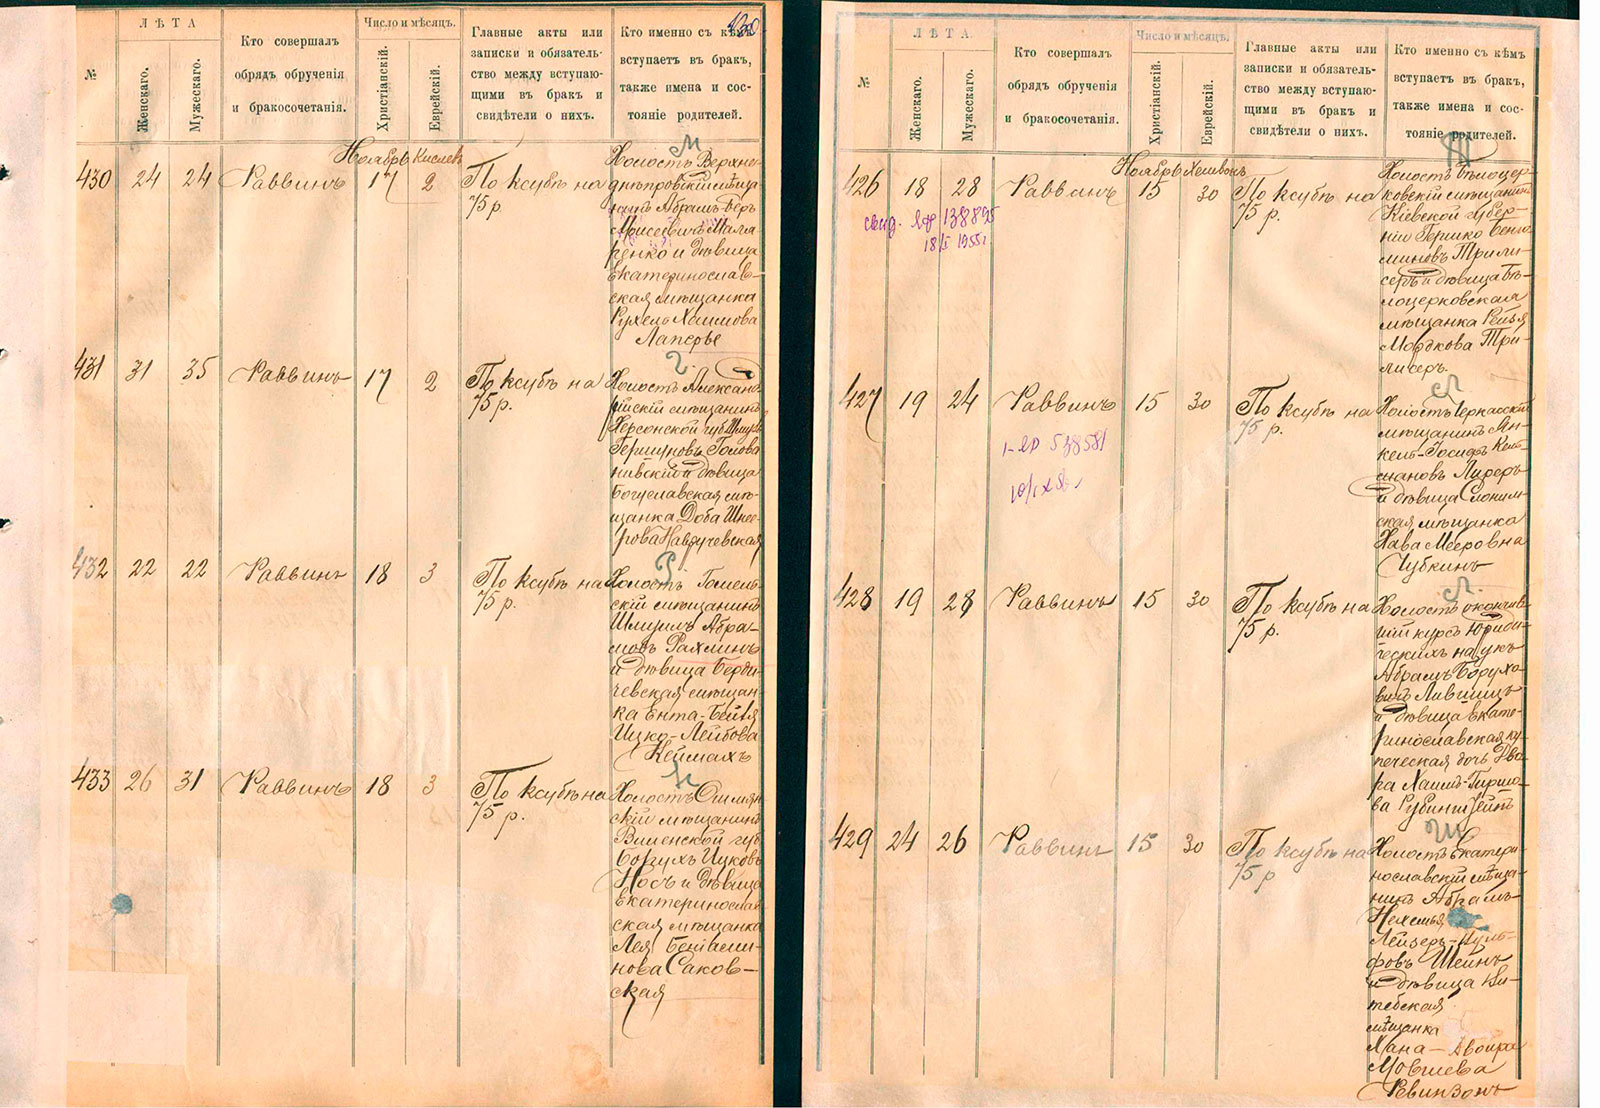 130
№
ЛѢТА
Женскаго.
Мужескаго.
Кто совершалъ
обрядъ обрученія
и бракосочетанія.
Число и мѣсяцъ.
Христіанскій.
Еврейскій.
Главные акты или
записки и обязатель-
ство между вступаю-
щими въ бракъ и
свидѣтели о нихъ.
Кто именно съ кѣмъ
вступаетъ въ бракъ,
также имена и сос-
тояніе родителей.
Ноябрь Кислевъ
430 24 24 Раввинъ 17 2 По ксубѣ на
75 р.
М
Холостъ Верхне-
днѣпровскій мѣща
нинъ Абрамъ-Беръ
Мойсеевичъ Маля-
ренко и дѣвица
Екатеринослав-
ская мѣщанка
Рухель Хаимова
Лаперье
431 31 35 Раввинъ 17 2 По ксубѣ на
75 р.
Г.
Холостъ Алексан
рійскій мѣщанинъ
Херсонской губ
Гершуновъ Голова
нивскій и дѣвица
Богуславская мѣ-
щанка Доба Шнее-
рова Навручевская
432 22 22 Раввинъ 18 3 По ксубѣ на
75 р.
Р
Холостъ Гомель-
скій мѣщанинъ
Шмуилъ Абра-
мовъ Рахминъ
и дѣвица Берди-
чевская мѣщан
ка Ента-Бейля
Ицко-Лейбова
Кеймахъ
433 26 31 Раввинъ 18 3 По ксубѣ на
75 р.
Н
Холостъ Ошмян
скій мѣщанинъ
Виленской губ
Борухъ Ицковъ
Носъ и дѣвица
Екатеринослав
ская мѣщанка
Лея Беніами-
нова Саков-
ская
№
ЛѢТА.
Женскаго.
Мужескаго.
Кто совершалъ
обрядъ обрученія
и бракосочетанія.
Число и мѣсяцъ.
Христіанскій.
Еврейскій.
Главные акты или
записки и обязатель-
ство между вступаю-
щими въ бракъ и
свидѣтели о нихъ.
Кто именно съ кѣмъ
вступаетъ въ бракъ,
также имена и сос-
тояніе родителей.
Ноябрь Хешвонъ
426 18 28 Раввинъ 15 30 По ксубѣ на
75 р.
Т
Холостъ бѣлоцер-
ковскій мѣщанинъ
Кіевской губер-
ніи Гершко Веніа
миновъ Трили-
серъ и дѣвица Бѣ-
лоцерковская
мѣщанка Рейзя
Мордкова Три-
лисеръ.
427 19 24 Раввинъ 15 30 По ксубѣ на
75 р.
Л
Холостъ Черкасскій
мѣщанинъ Ян-
кель-Іосифъ Кель-
мановъ Лиреръ
и дѣвица Слоним-
ская мѣщанка
Хава Мееровна
Чубкинъ
428 19 28 Раввинъ 15 30 По ксубѣ на
75 р.
Л.
Холостъ окончив-
шій курсъ Юриди-
ческихъ наукъ
Абрамъ Борухо-
вичъ Лившицъ
и дѣвица Екате-
ринославская ку-
печеская дочь Дво-
ра Хаимъ-Гиршо-
ва Рубинштейнъ
429 24 26 Раввинъ 15 30 По ксубѣ на
75 р
Ш
Холостъ Екатери-
нославскій мѣща-
нинъ Абрамъ-
Нехемья
Лейзеръ-Вуль-
фовъ Шейнъ
и дѣвица Ви-
тебская
мѣщанка
Хана-Двойра
Мовшева
Ревинзонъ